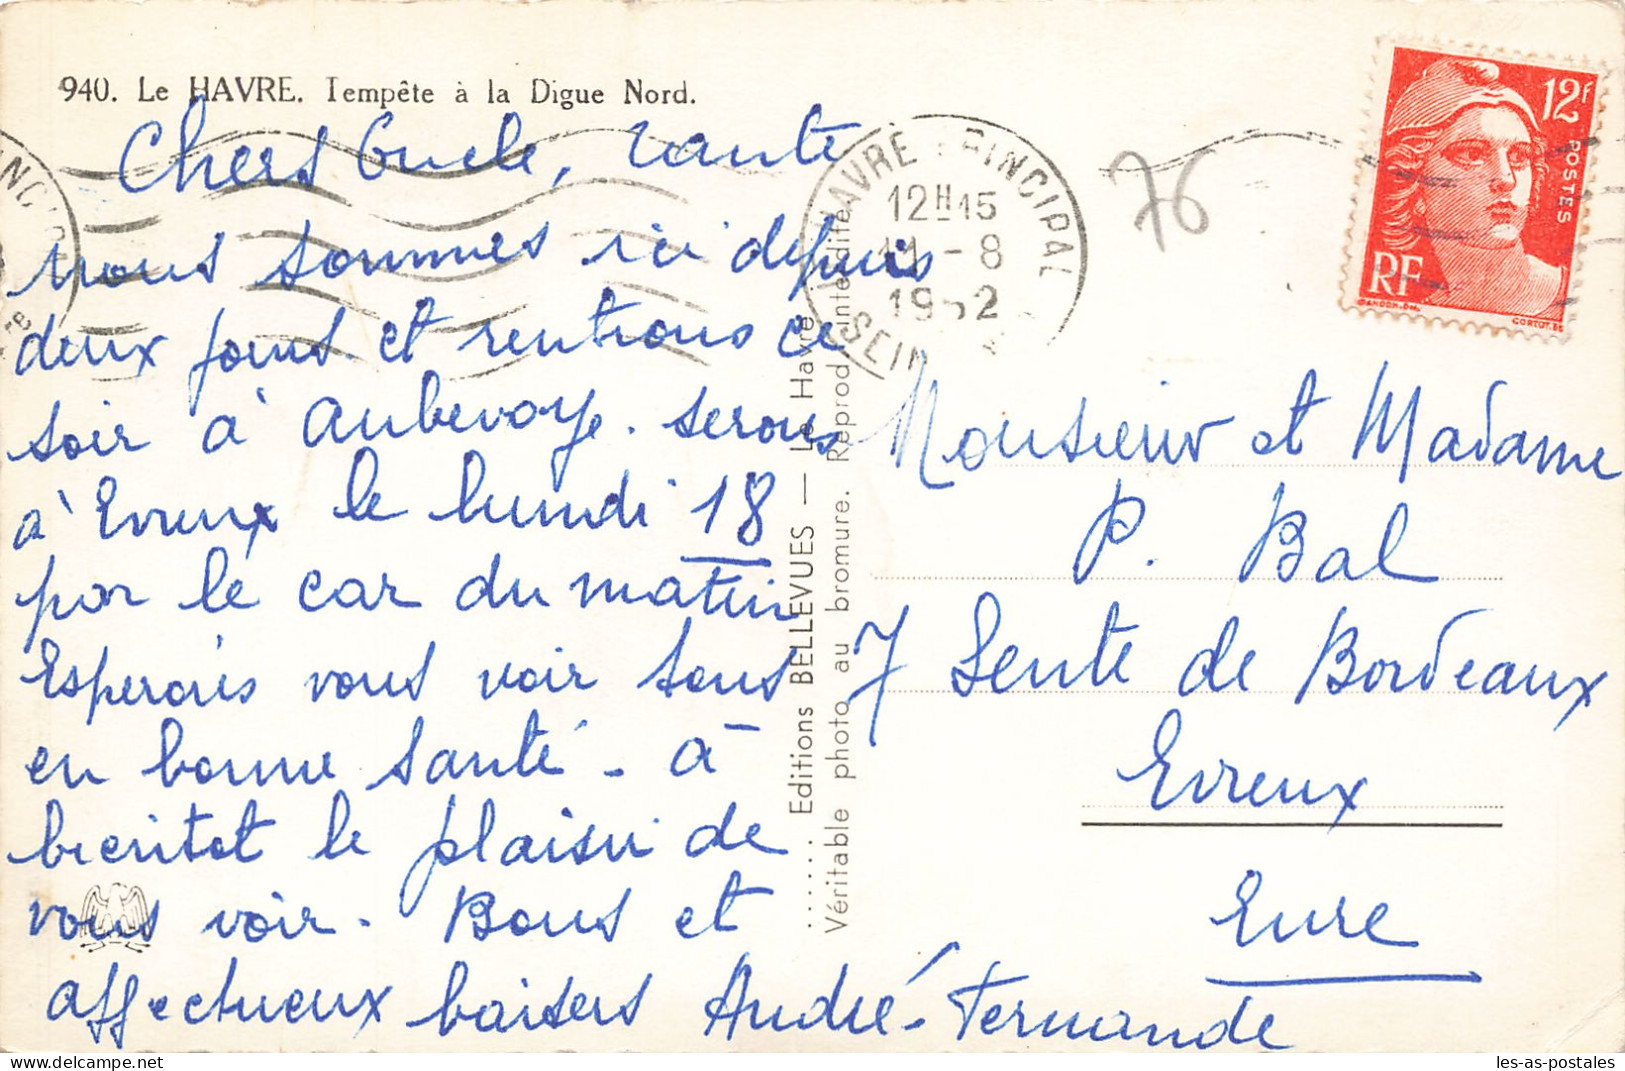 940. Le HAVRE. Tempête à la Digue Nord.
Chers Oncle, Tante
nous sommes ici depuis
deux jours et rentrons ce
soir à Aubevoye. serons
à Evreux le lundi 18
par le car du matin
Esperons vous voir tous
en bonne santé - à
bientot le plaisir de
vous voir. Bons et
affectueux baisers André-Fernande
Editions BELLEVUES — Le Havre
Véritable photo au bromure. Reprod. interdite
HAVRE PRINCIPAL
12H15
- 8
1952
SEINE
76
12F
POSTES
RF
GANDON
CORTOT.SC
Monsieur et Madame
P. Bal
7 Sente de Bordeaux
Evreux
Eure
les-as-postales